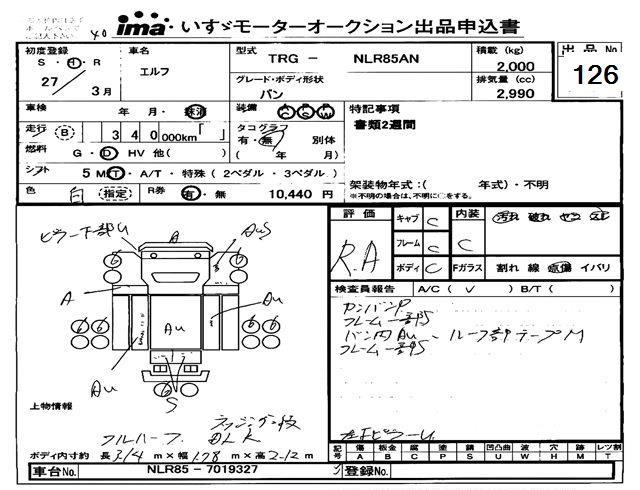 ima いすゞモーターオークション出品申込書
初度登録 車名 型式 TRG - NLR85AN 積載 (kg) 出品No
S・H・R エルフ 2,000
27 3月 グレード・ボディ形状 排気量 (cc) 126
バン 2,990
車検 年 月・抹消 装備 A/C P/S P/W 特記事項
走行 (B) 340 000km「 」 タコグラフ 書類2週間
有・無 別体
燃料 G・D HV 他( ) ( 年 月)
シフト 5 MT・A/T・特殊(2ペダル・3ペダル)
架装物年式:( 年式)・不明
色 白 (指定) R券 有・無 10,440 円 ※不明の場合は、不明に○をする。
評価 キャブ C 内装 汚れ 破れ
R.A フレーム C C
ボディ C Fガラス 割れ 線 点傷 イバリ
検査員報告 A/C ( ✓ ) B/T ( )
ピラー下部U A AuS
A Au
Au
Au
S
カンバンP
フレーム一部S
バン内Au、ルーフ部テープM
フレーム一部S
上物情報
フルハーフ ラッシング2段
ボディ内寸約 長314 m×幅178 m×高212 m
記号 傷 A 板金 B 腐 C 塗 P 錆 S 凹凸曲 U 波 W 穴 H 跡 M レツ割 T
車台No. NLR85 - 7019327 登録No.